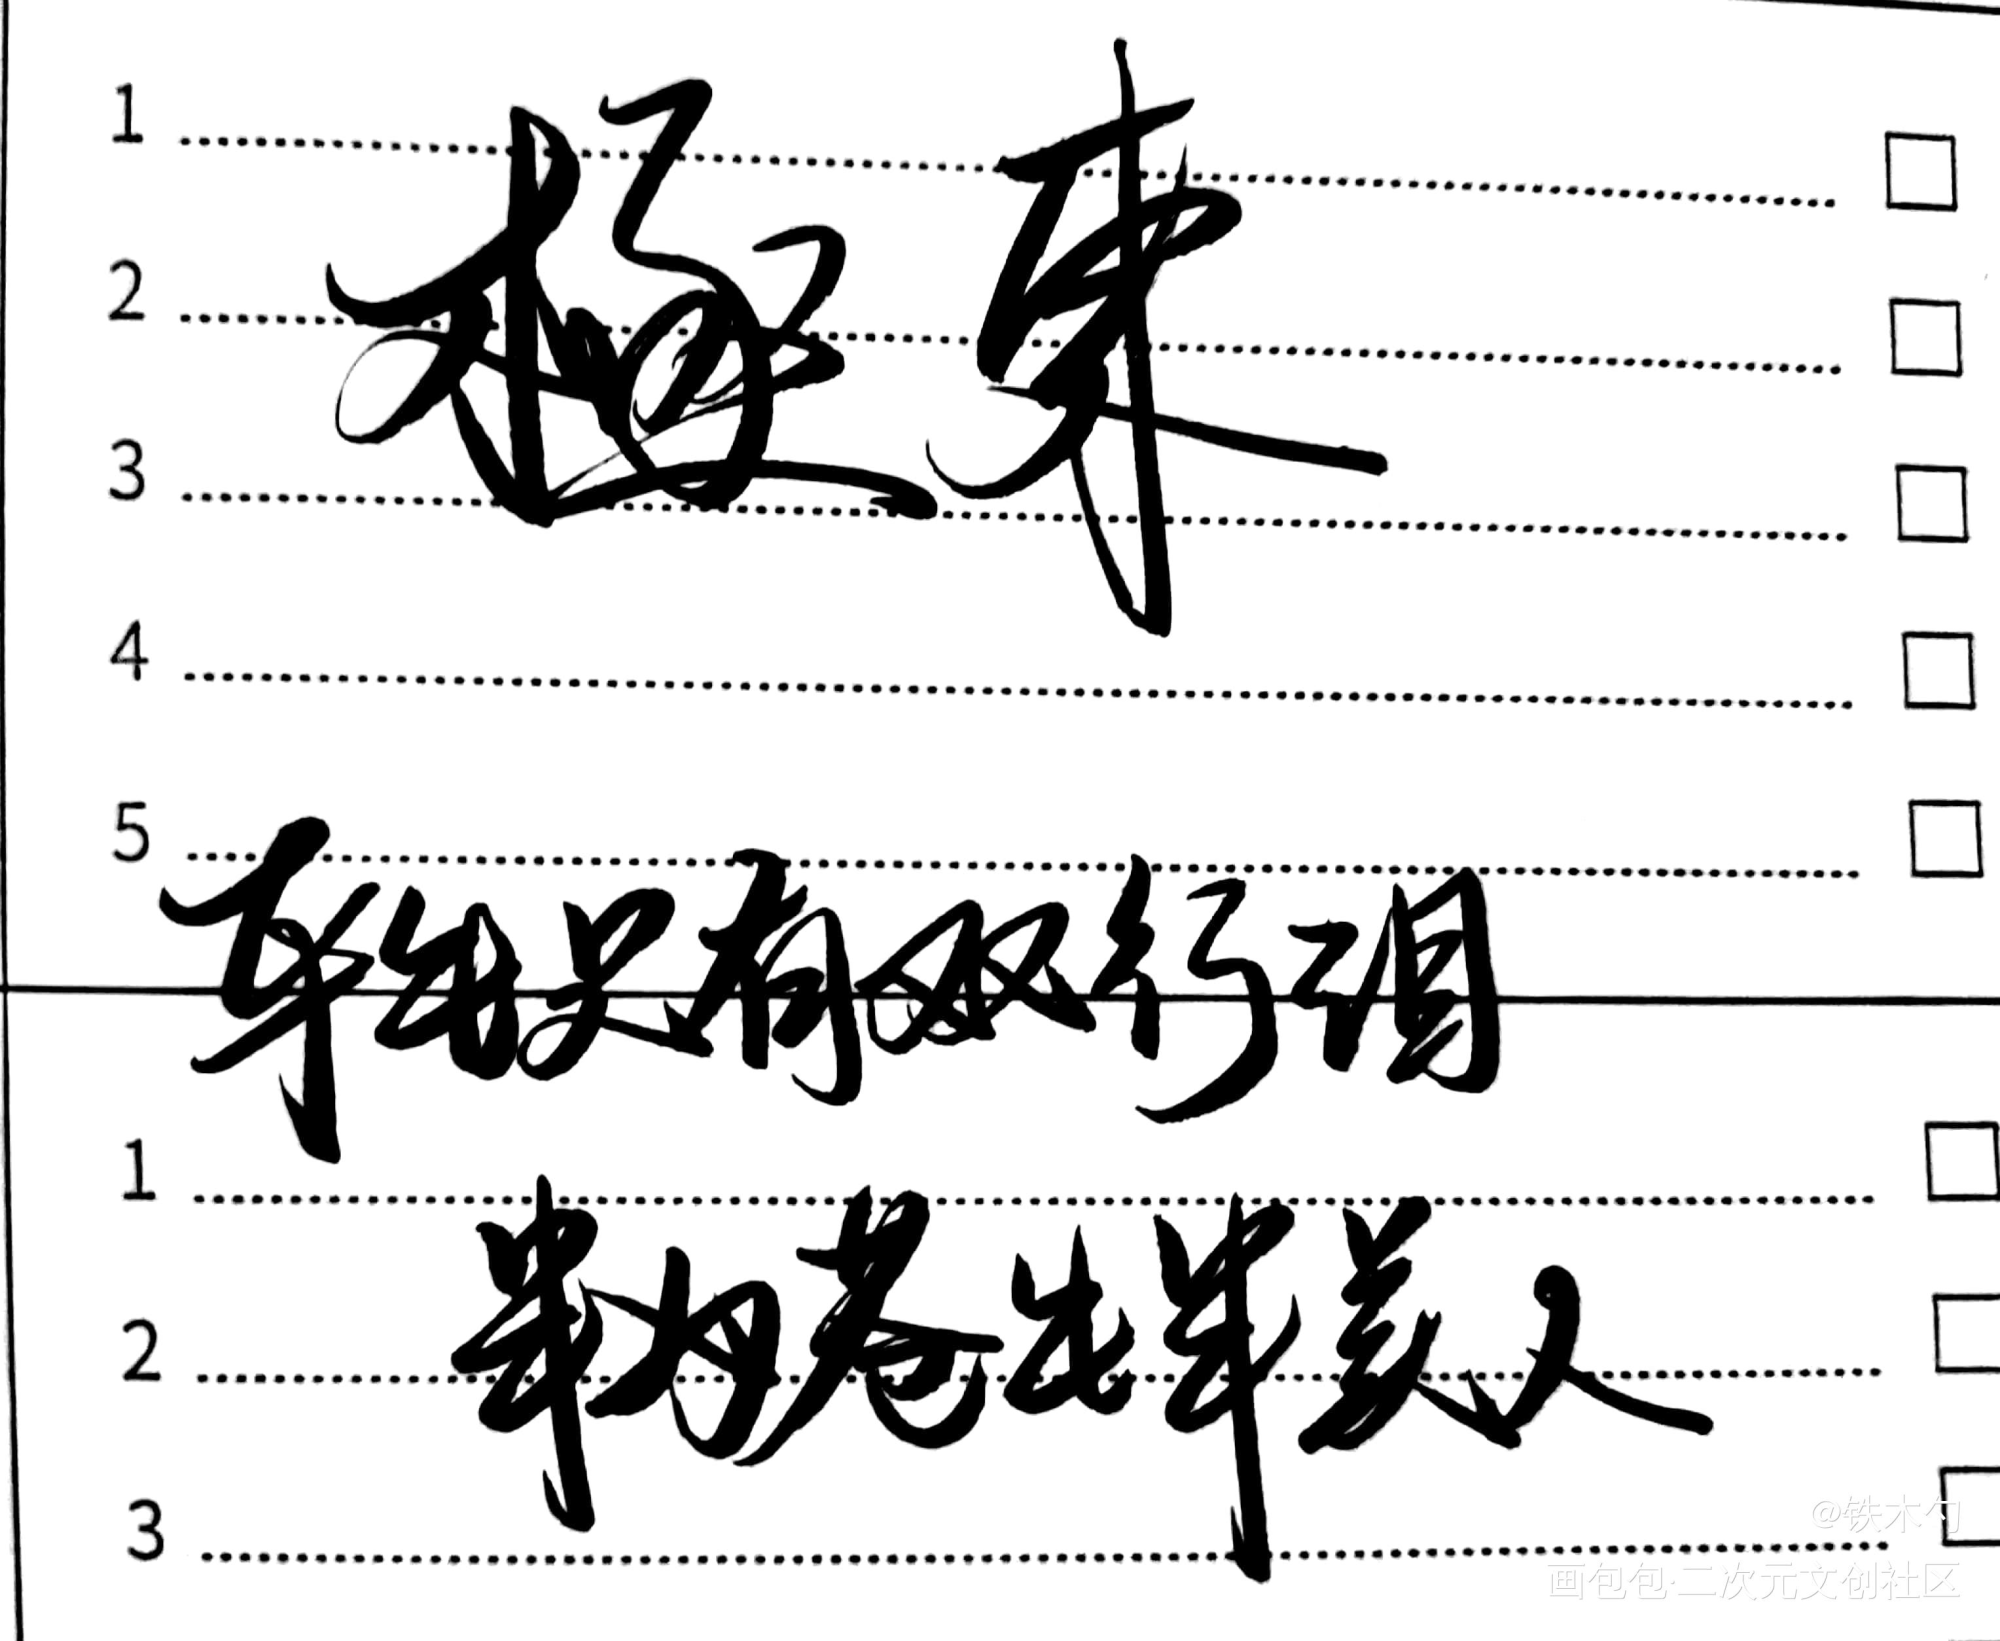 1
極東
2
3
4
5
平生只有双行泪
1
半为苍生半美人
2
3
@铁木勺
画包包·二次元文创社区